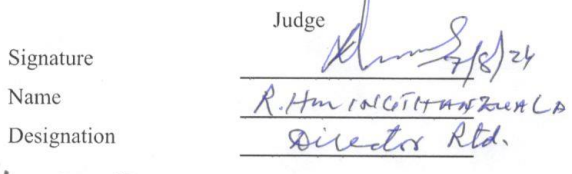 Judge
Signature 7/8/24
Name R. HMINGTHANZUALA
Designation Director Rtd.